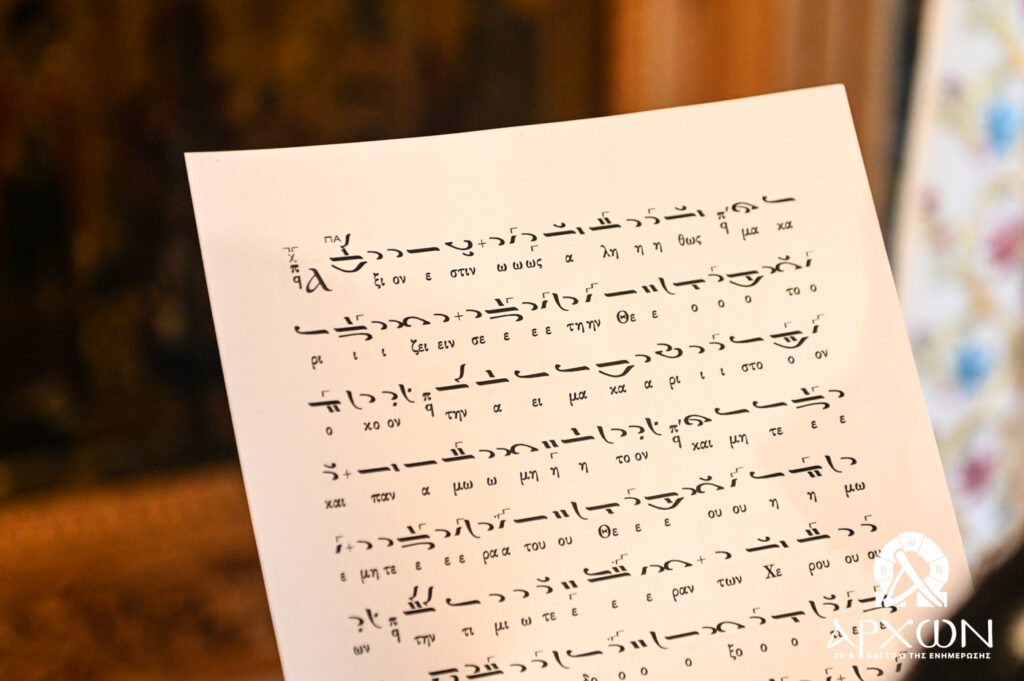 ΠΑ
Α ξι ον ε στιν ω ω ως α λη η η θως μα κα
ρι ι ι ζει ειν σε ε ε ε τη ην Θε ε ο ο ο το ο
ο κο ον την α ει μα κα α ρι ι ι στο ο ον
και παν α μω ω μη η η το ον και μη τε ε ε
ε μη τε ε ε ε ρα α του ου Θε ε ε ου ου η η μω
ων την τι μι ω τε ε ε ε ραν των Χε ρου ου ου
ο ο ξο ο ο
ΑΡΧΩΝ
ΤΟ Α ΚΑΙ ΤΟ Ω ΤΗΣ ΕΝΗΜΕΡΩΣΗΣ